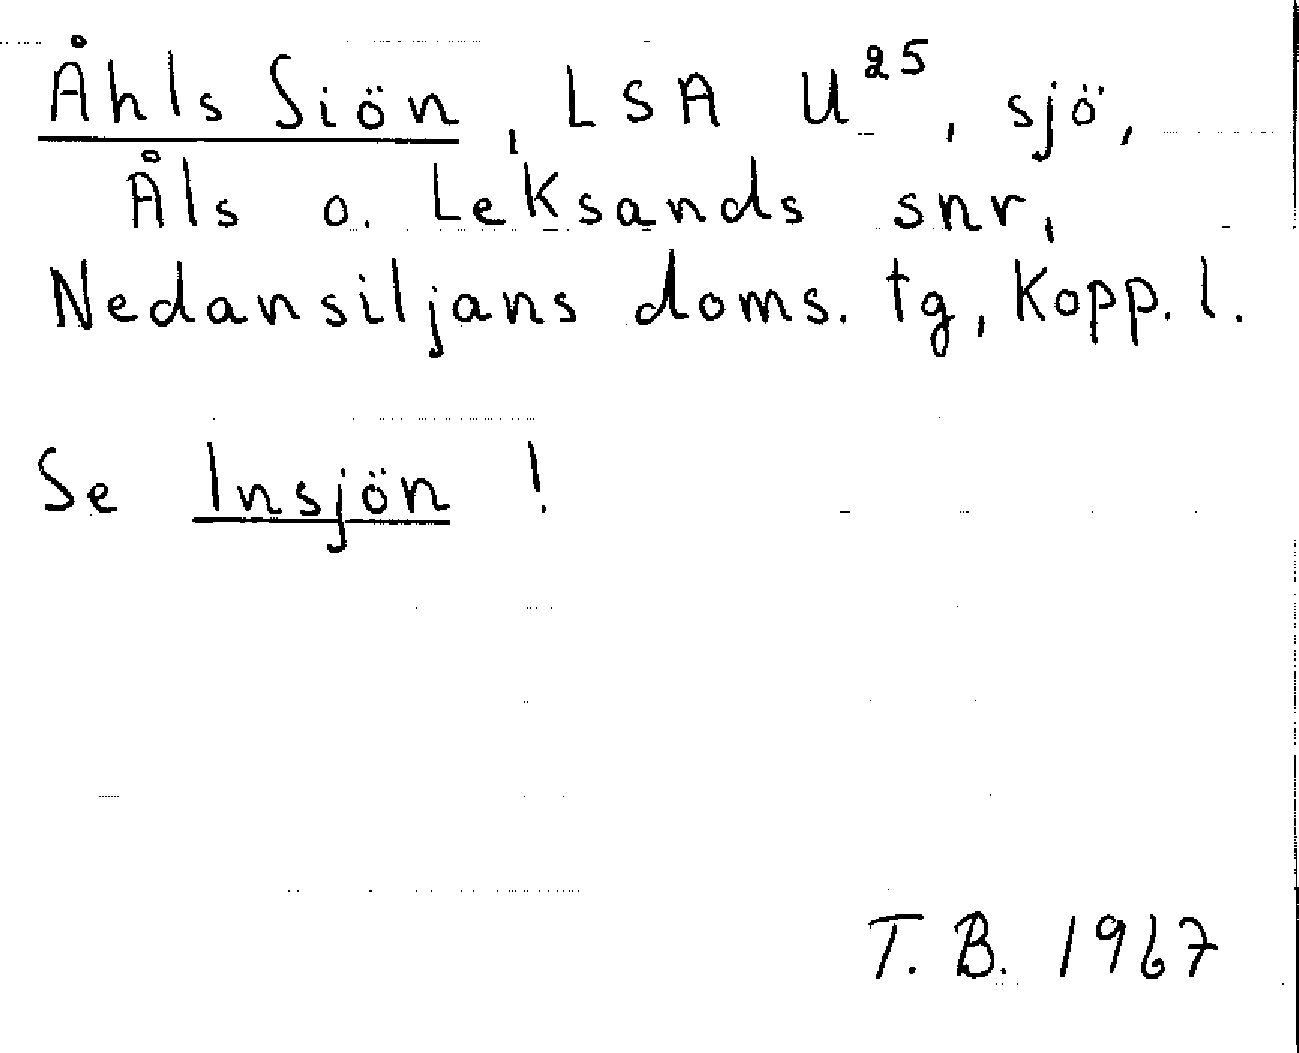 Åhls Siön, LSA U²⁵, sjö,
Åls o. Leksands snr,
Nedansiljans doms. tg, Kopp. l.
Se Insjön !
T. B. 1967